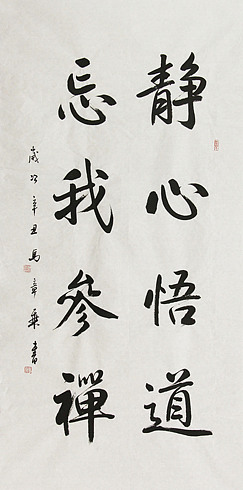 静心悟道
忘我参禅
岁次辛丑马章乘书